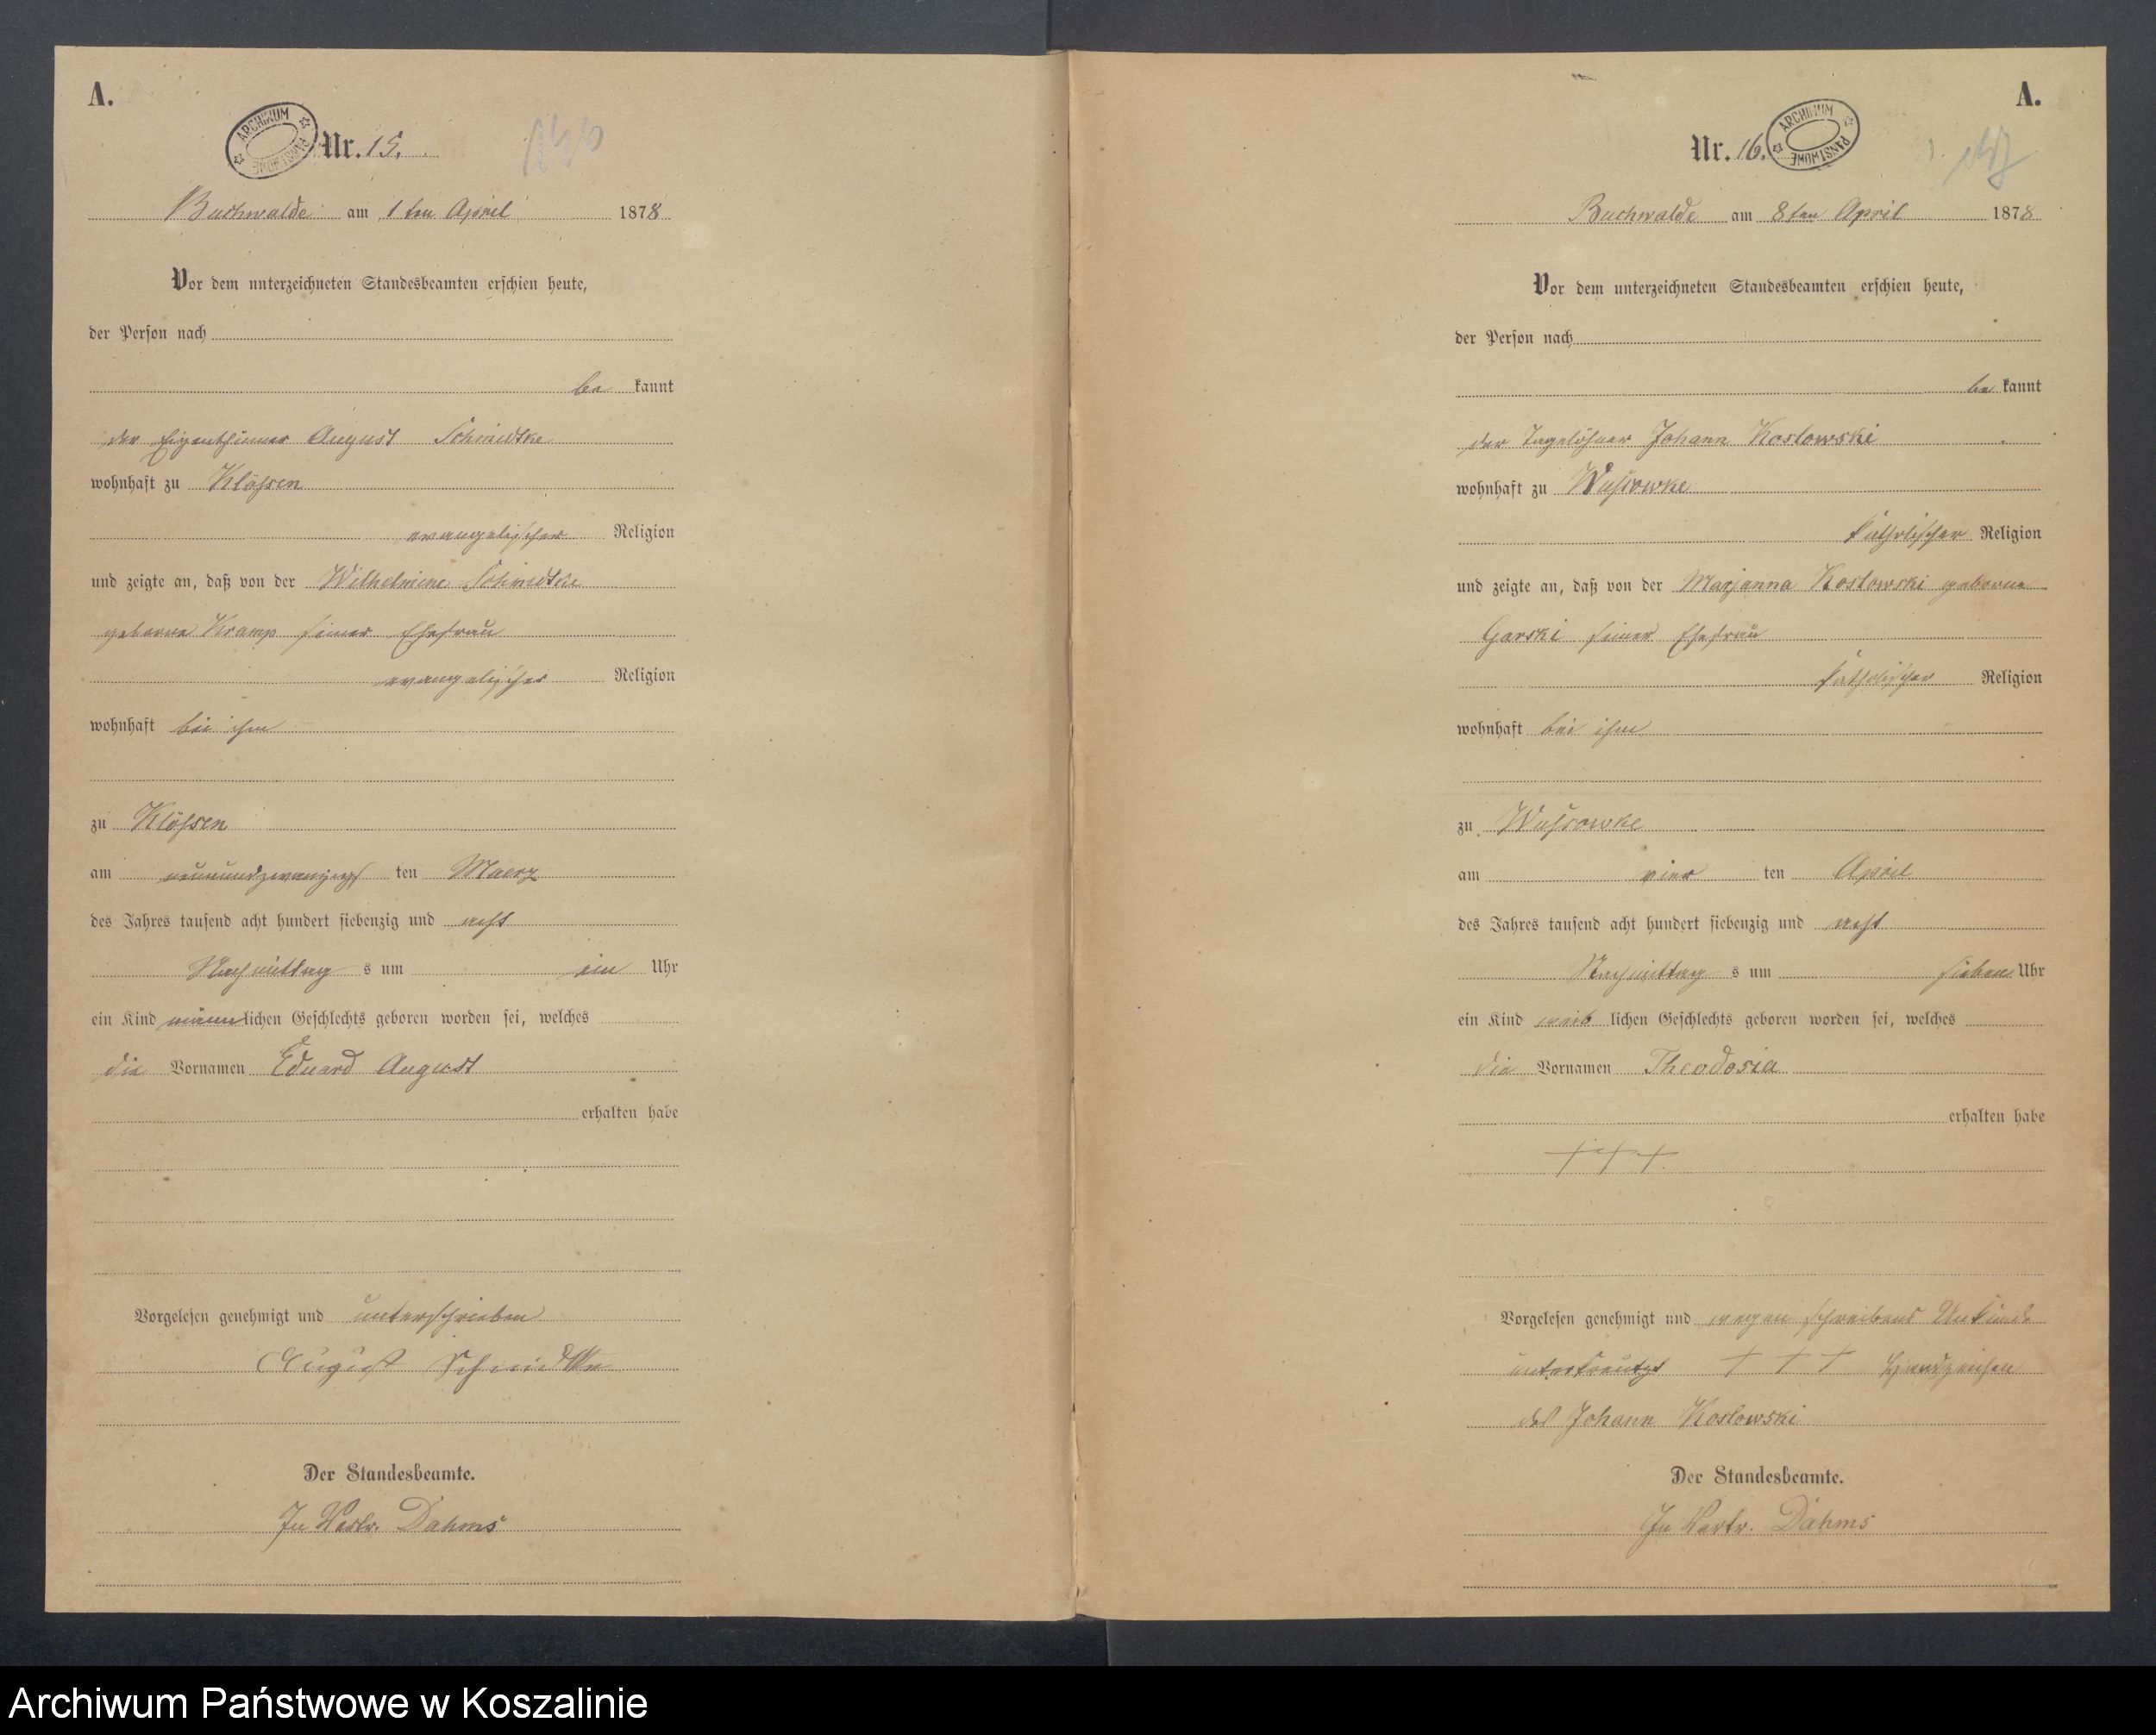 A.
ARCHIWUM PAŃSTWOWE
Nr. 15.
Buchwalde am 1ten April 1878
Vor dem unterzeichneten Standesbeamten erschien heute,
der Person nach
be kannt
der Eigenthümer August Schmidtke
wohnhaft zu Klössen
evangelischer Religion
und zeigte an, daß von der Wilhelmine Schmidtke
geborne Kramp seiner Ehefrau
evangelischer Religion
wohnhaft bei ihm
zu Klössen
am neunundzwanzigs ten Maerz
des Jahres tausend acht hundert siebenzig und acht
Nachmittag s um ein Uhr
ein Kind männlichen Geschlechts geboren worden sei, welches
die Vornamen Eduard August
erhalten habe
Vorgelesen genehmigt und unterschrieben
August Schmidtke
Der Standesbeamte.
In Vertr. Dahms
A.
Nr. 16.
ARCHIWUM PAŃSTWOWE
147
Buchwalde am 8ten April 1878
Vor dem unterzeichneten Standesbeamten erschien heute,
der Person nach
be kannt
der Tagelöhner Johann Koslowski
wohnhaft zu Wussowke
katholischer Religion
und zeigte an, daß von der Marjanna Koslowski geborne
Garski seiner Ehefrau
katholischer Religion
wohnhaft bei ihm
zu Wussowke
am vier ten April
des Jahres tausend acht hundert siebenzig und acht
Nachmittag s um sieben Uhr
ein Kind weib lichen Geschlechts geboren worden sei, welches
die Vornamen Theodosia
erhalten habe
+++
Vorgelesen genehmigt und wegen schreibens Unkunde
unterkreuzt + + + Handzeichen
des Johann Koslowski
Der Standesbeamte.
In Vertr. Dahms
Archiwum Państwowe w Koszalinie